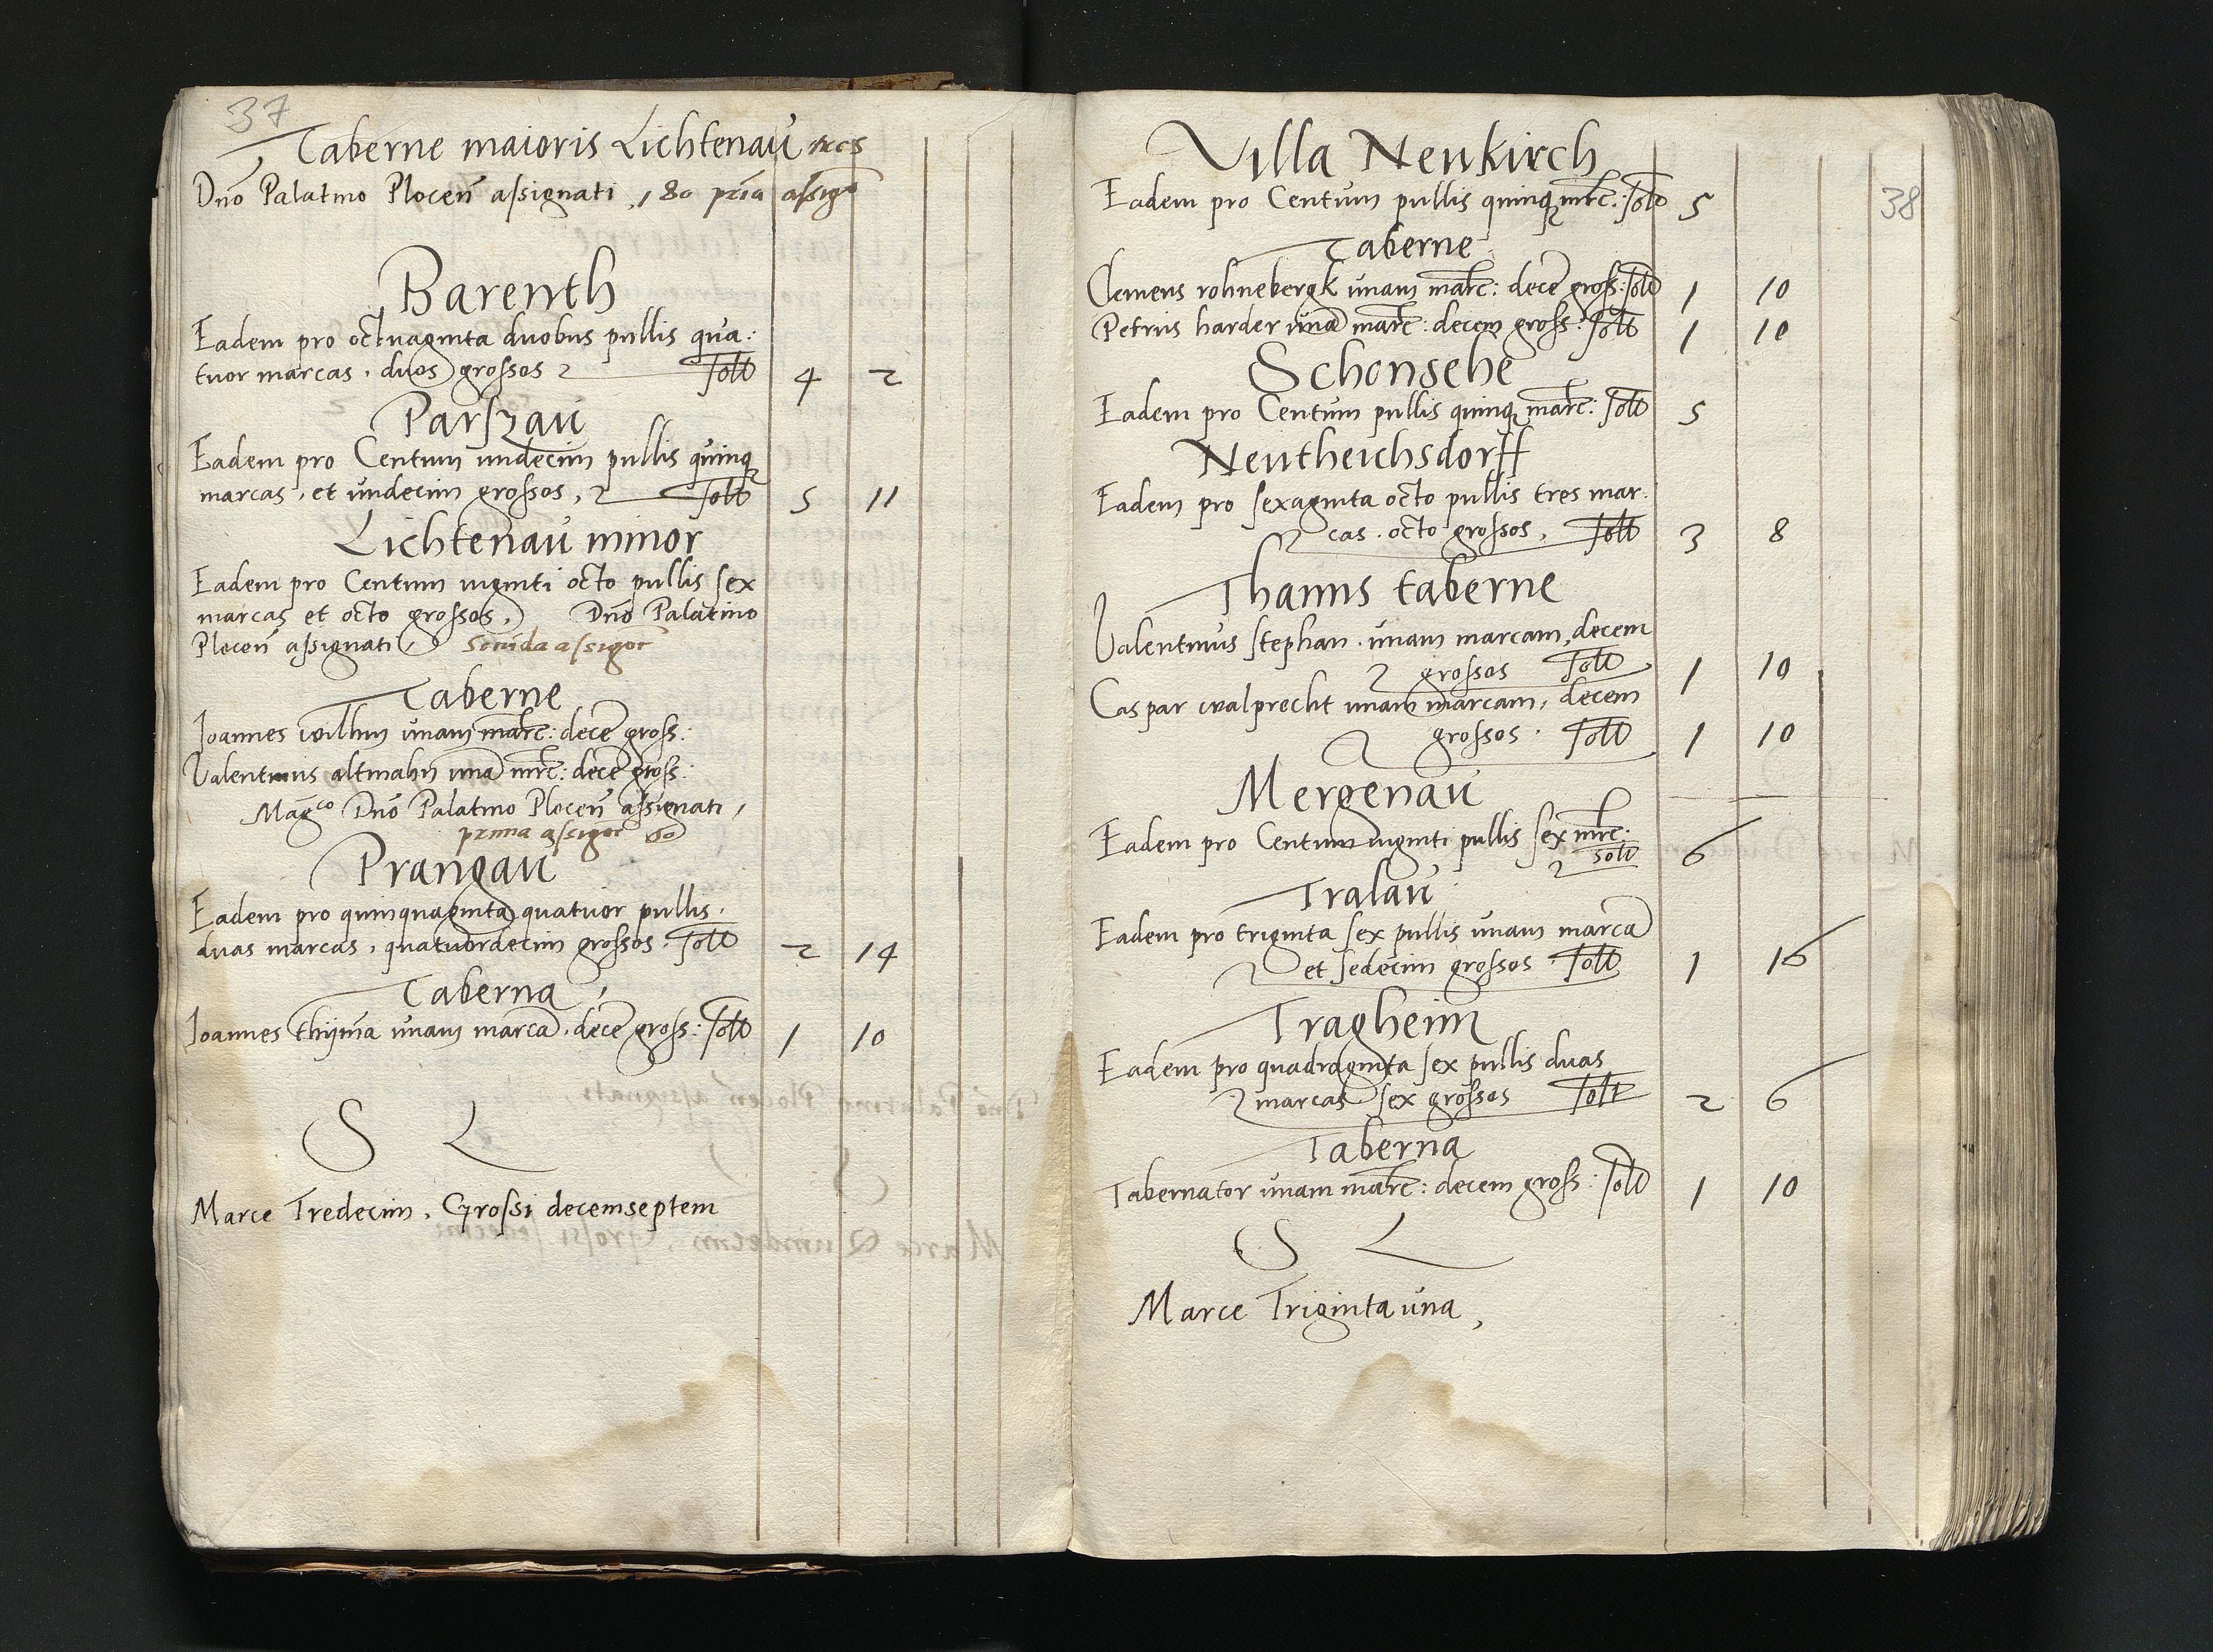 37
Taberne maioris Lichtenau
Dnō Palatino Plocen̄ assignati, 180 pria assig
Barenth
Eadem pro octuaginta duobus pullis qua:
tuor marcas. duos grossos solt 4 2
Parszau
Eadem pro Centum undecim pullis quinq
marcas, et undecim grossos, solt 5 11
Lichtenau minor
Eadem pro Centum viginti octo pullis sex
marcas et octo grossos, Dnō Palatino
Plocen̄ assignati
Taberne
Ioannes wilhm unam marc: decē gross:
Valentinus altmahn unā mrc: decē gross:
Magco Dnō Palatino Plocen̄ assignati,
prima assigor 60
Prangau
Eadem pro quinquaginta quatuor pullis,
duas marcas, quatuordecim grossos. solt 2 14
Taberna
Ioannes thijma unam marcā. decē gross: solt 1 10
S L
Marce Tredecim, Grossi decemseptem
Villa Neukirch
Eadem pro Centum pullis quinq mrc: solt 5
38
Taberne
Clemens rohnebergk unam marc: decē gross: solt 1 10
Petrus harder unā marc: decem gross: solt 1 10
Schonsehe
Eadem pro Centum pullis quinq marc: solt 5
Neutheichsdorff
Eadem pro sexaginta octo pullis tres mar:
cas. octo grossos, solt 3 8
Thanns taberne
Valentinus stephan. unam marcam, decem
grossos solt 1 10
Caspar walprecht unam marcam, decem
grossos. solt 1 10
Mergenau
Eadem pro Centum viginti pullis sex mrc:
solt 6
Tralau
Eadem pro triginta sex pullis unam marcā
et sedecim grossos. solt 1 16
Tragheim
Eadem pro quadraginta sex pullis duas
marcas sex grossos solt 2 6
Taberna
Tabernator unam marc: decem gross: solt 1 10
S L
Marce Triginta una,